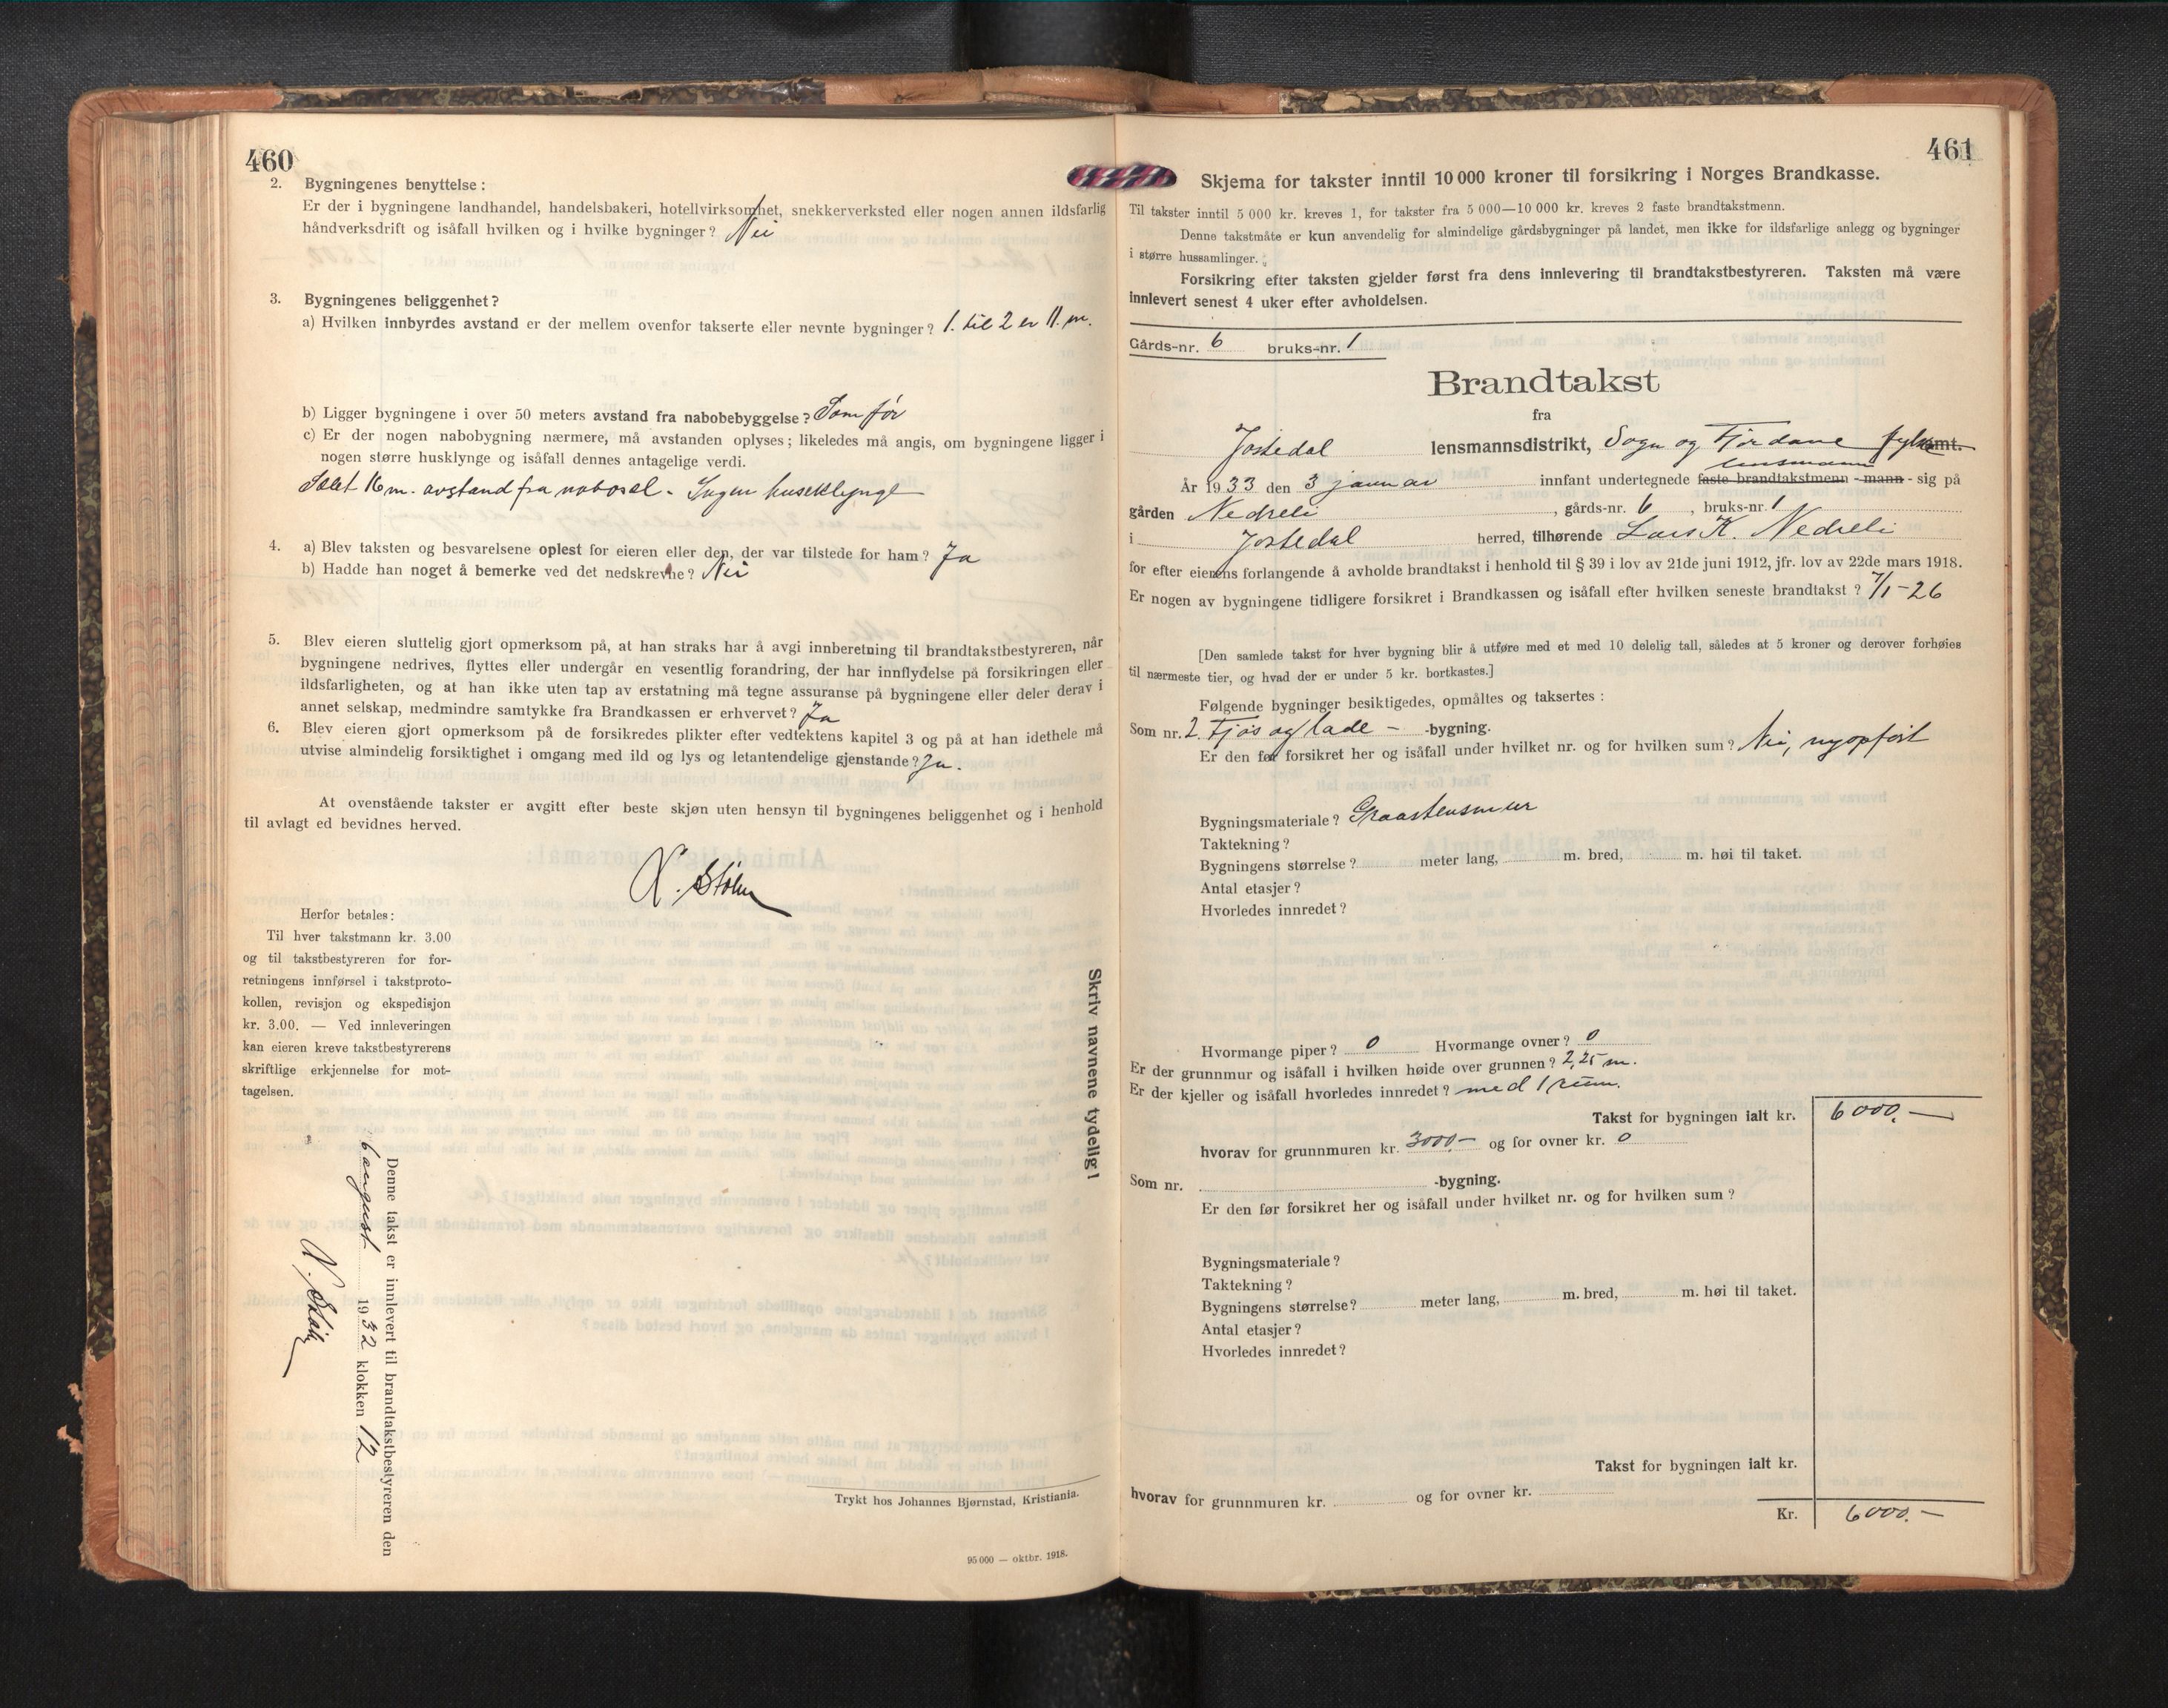 460
2. Bygningenes benyttelse:
Er der i bygningene landhandel, handelsbakeri, hotellvirksomhet, snekkerverksted eller nogen annen ildsfarlig
håndverksdrift og isåfall hvilken og i hvilke bygninger? Nei
3. Bygningenes beliggenhet?
a) Hvilken innbyrdes avstand er der mellem ovenfor takserte eller nevnte bygninger? 1. til 2 er 11. m.
b) Ligger bygningene i over 50 meters avstand fra nabobebyggelse? Som før
c) Er der nogen nabobygning nærmere, må avstanden oplyses; likeledes må angis, om bygningene ligger i
nogen større husklynge og isåfall dennes antagelige verdi.
Selet 16 m. avstand fra nabosel. Ingen huseklynge
4. a) Blev taksten og besvarelsene oplest for eieren eller den, der var tilstede for ham? Ja
b) Hadde han noget å bemerke ved det nedskrevne? Nei
5. Blev eieren sluttelig gjort opmerksom på, at han straks har å avgi innberetning til brandtakstbestyreren, når
bygningene nedrives, flyttes eller undergår en vesentlig forandring, der har innflydelse på forsikringen eller
ildsfarligheten, og at han ikke uten tap av erstatning må tegne assuranse på bygningene eller deler derav i
annet selskap, medmindre samtykke fra Brandkassen er erhvervet? Ja
6. Blev eieren gjort opmerksom på de forsikredes plikter efter vedtektens kapitel 3 og på at han idethele må
utvise almindelig forsiktighet i omgang med ild og lys og letantendelige gjenstande? Ja.
At ovenstående takster er avgitt efter beste skjøn uten hensyn til bygningenes beliggenhet og i henhold
til avlagt ed bevidnes herved.
Herfor betales:
Til hver takstmann kr. 3.00
og til takstbestyreren for for-
retningens innførsel i takstproto-
kollen, revisjon og ekspedisjon
kr. 3.00. — Ved innleveringen
kan eieren kreve takstbestyrerens
skriftlige erkjennelse for mot-
tagelsen.
Skriv navnene tydelig!
Denne takst er innlevert til brandtakstbestyreren den
6 august 1932 klokken 12
Trykt hos Johannes Bjørnstad, Kristiania.
95 000 — oktbr. 1918.
461
Skjema for takster inntil 10 000 kroner til forsikring i Norges Brandkasse.
Til takster inntil 5 000 kr. kreves 1, for takster fra 5 000—10 000 kr. kreves 2 faste brandtakstmenn.
Denne takstmåte er kun anvendelig for almindelige gårdsbygninger på landet, men ikke for ildsfarlige anlegg og bygninger
i større hussamlinger.
Forsikring efter taksten gjelder først fra dens innlevering til brandtakstbestyreren. Taksten må være
innlevert senest 4 uker efter avholdelsen.
Gårds-nr. 6 bruks-nr. 1
Brandtakst
fra
Jostedal lensmannsdistrikt, Sogn og Fjordane fylke amt.
lensmann
År 1933 den 3 januar innfant undertegnede faste brandtakstmenn - mann - sig på
gården Nedreli, gårds-nr. 6, bruks-nr. 1
i Jostedal herred, tilhørende Lars K. Nedreli
for efter eierens forlangende å avholde brandtakst i henhold til § 39 i lov av 21de juni 1912, jfr. lov av 22de mars 1918.
Er nogen av bygningene tidligere forsikret i Brandkassen og isåfall efter hvilken seneste brandtakst? 7/1-26
[Den samlede takst for hver bygning blir å utføre med et med 10 delelig tall, således at 5 kroner og derover forhøies
til nærmeste tier, og hvad der er under 5 kr. bortkastes.]
Følgende bygninger besiktigedes, opmåltes og taksertes:
Som nr. 2. Fjøs og lade - -bygning.
Er den før forsikret her og isåfall under hvilket nr. og for hvilken sum? Nei, nyopført
Bygningsmateriale? Graastensmur
Taktekning?
Bygningens størrelse? meter lang, m. bred, m. høi til taket.
Antal etasjer?
Hvorledes innredet?
Hvormange piper? 0 Hvormange ovner? 0
Er der grunnmur og isåfall i hvilken høide over grunnen? 2,25 m.
Er der kjeller og isåfall hvorledes innredet? med 1 rum.
Takst for bygningen ialt kr. 6000.—
hvorav for grunnmuren kr. 3000.— og for ovner kr. 0
Som nr. -bygning.
Er den før forsikret her og isåfall under hvilket nr. og for hvilken sum?
Bygningsmateriale?
Taktekning?
Bygningens størrelse? meter lang, m. bred, m. høi til taket.
Antal etasjer?
Hvorledes innredet?
Takst for bygningen ialt kr.
hvorav for grunnmuren kr. og for ovner kr.
Kr. 6000.—